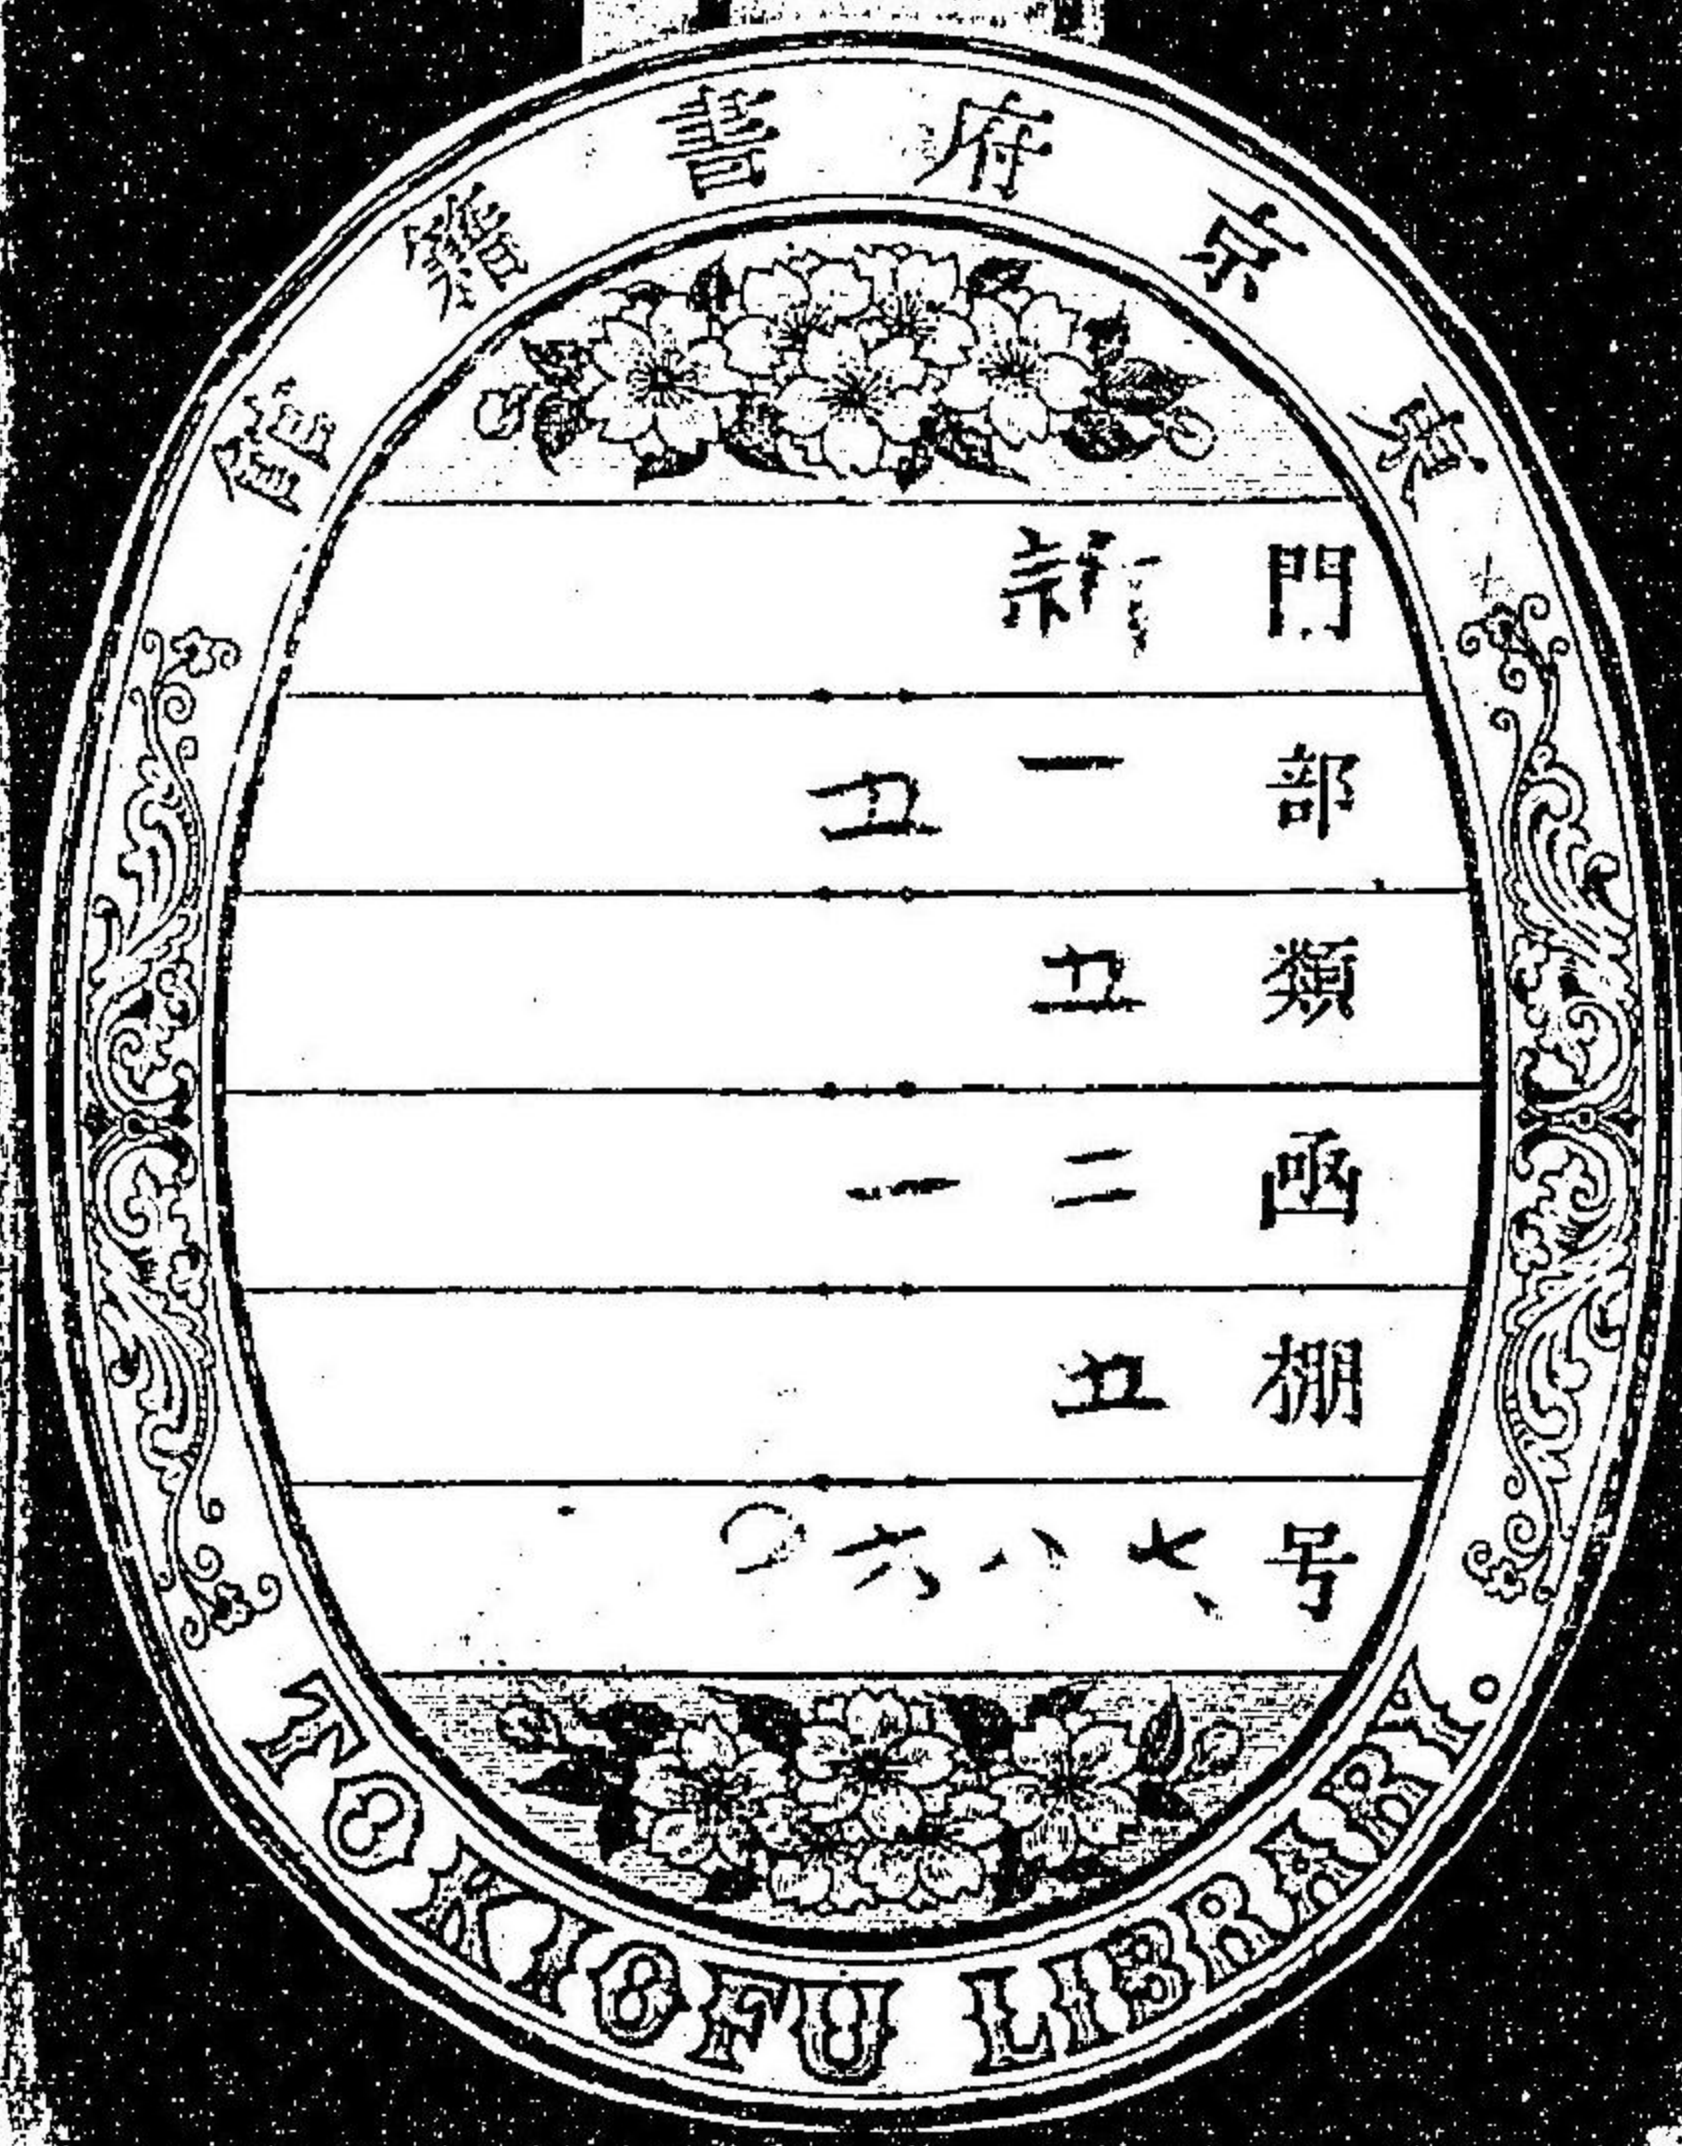 東京府書籍館
門 新
部 一五
類 五
凾 二一
棚 五
号 七八六〇
TOKIOFU LIBRARY.